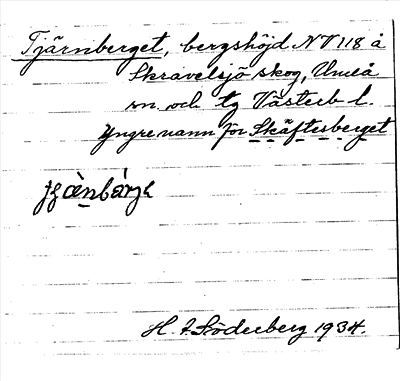 Tjärnberget, bergshöjd NV 118 å
Skravelsjö skog, Umeå
sn. och tg Västerb. l.
Yngre namn för Skäftesberget
H. Söderberg 1934.